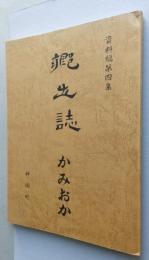 資料編第四集
郷土誌
かみおか
神岡町